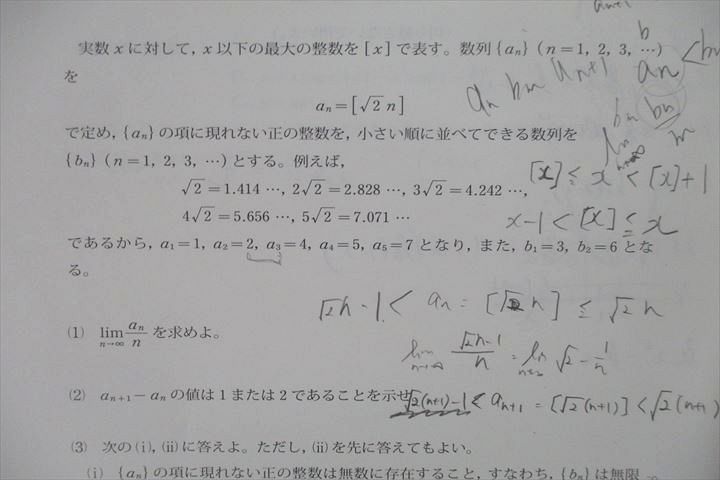 実数 x に対して, x 以下の最大の整数を [x] で表す。数列 {aₙ} (n=1, 2, 3, …)
を
aₙ=[√2 n]
で定め, {aₙ} の項に現れない正の整数を, 小さい順に並べてできる数列を
{bₙ} (n=1, 2, 3, …) とする。例えば,
√2=1.414 …, 2√2=2.828 …, 3√2=4.242 …,
4√2=5.656 …, 5√2=7.071 …
であるから, a₁=1, a₂=2, a₃=4, a₄=5, a₅=7 となり, また, b₁=3, b₂=6 とな
る。
(1) lim n→∞ aₙ/n を求めよ。
(2) aₙ₊₁−aₙ の値は 1 または 2 であることを示せ
(3) 次の(i), (ii)に答えよ。ただし, (ii)を先に答えてもよい。
(i) {aₙ} の項に現れない正の整数は無数に存在すること, すなわち, {bₙ} は無限
aₙ₊₁
b
aₙ bₙ aₙ₊₁ aₙ < bₙ
[x] ≦ x < [x]+1
x−1 < [x] ≦ x
√2n−1 < aₙ = [√2 n] ≦ √2 n
lim n→∞ √2n−1/n = lim n→∞ √2 − 1/n
√2(n+1)−1 < aₙ₊₁ = [√2(n+1)] < √2(n+1)